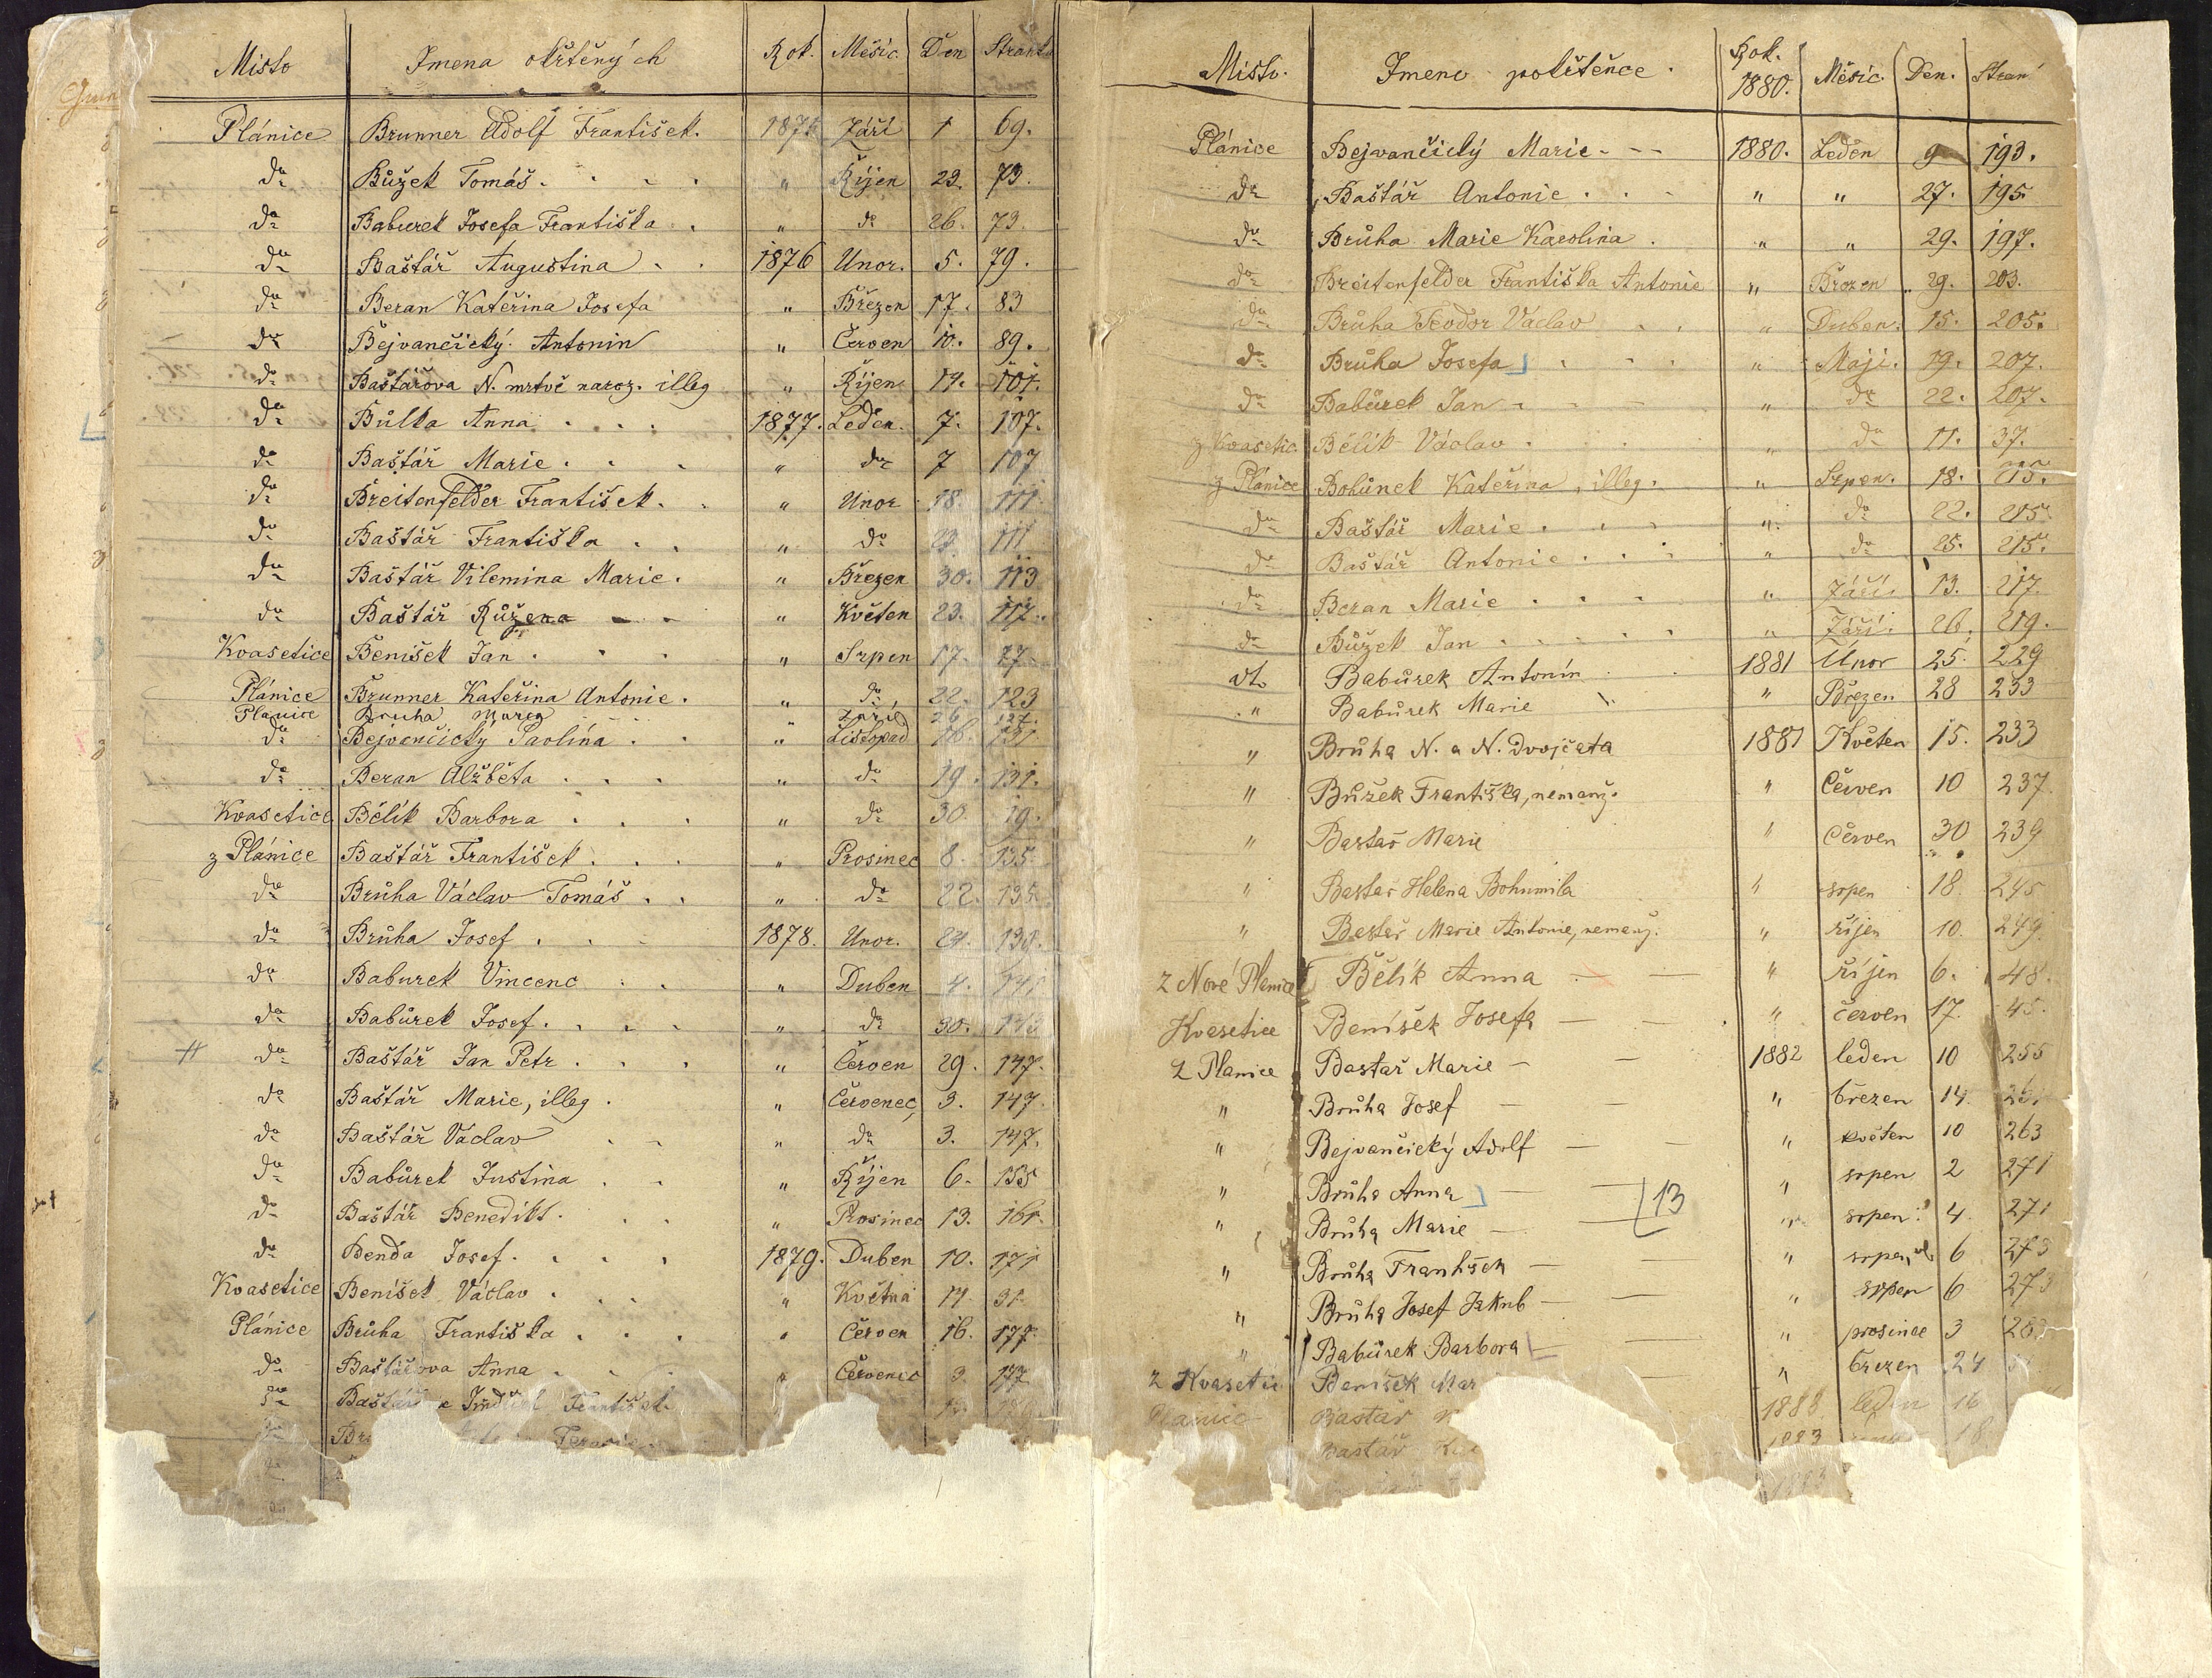 Místo Jmena okřtěných Rok. Měsíc. Den Strana
Plánice Brunner Adolf František. 1875 Září 1 69.
do Bůžek Tomáš. " Říjen 23. 73.
do Baburek Josefa Františka " do 26. 73.
do Baštář Augustina 1876 Unor. 5. 79.
do Beran Kateřina Josefa " Březen 17. 83
do Bejvančický Antonin " Červen 10. 89.
do Baštářova N. mrtvě naroz. illeg " Říjen 14. 101.
do Bůlka Anna 1877. Leden. 7. 107.
do Baštář Marie. " do 7 107
do Breitenfelder František. " Unor 18. 111
do Baštář Františka " do 23. 111
do Baštář Vilemina Marie. " Březen 30. 113
do Baštář Růžena " Květen 23. 117.
Kvasetice Benišek Jan " Srpen 17. 27.
Plánice Brunner Kateřina Antonie. " do 22. 123
Planice Bruha Marea " Září 26 127.
do Bejvančický Pavlína " Listopad 16. 131
do Beran Alžběta " do 19. 131.
Kvasetice Bělík Barbora " do 30. 19.
z Plánice Baštář František " Prosinec 8. 135.
do Brůha Václav Tomáš " do 22. 135.
do Brůha Josef 1878. Unor. 24. 139.
do Baburek Vincenc " Duben 4. 141
do Babůrek Josef. " do 30. 143
do Baštář Jan Petr " Červen 29. 147.
do Baštář Marie, illeg. " Červenec 3. 147.
do Baštář Václav " do 3. 147.
do Babůrek Justina " Říjen 6. 155
do Baštář Benedikt. " Prosinec 13. 161.
do Benda Josef. 1879. Duben 10. 171
Kvasetice Benišek Václav " Květná 14. 31.
Plánice Brůha Františka " Červen 16. 177.
do Baštářova Anna " Červenec 3. 177.
do Baštář František
Místo. Jmeno pokřtěnce. Rok. 1880. Měsíc. Den. Stran
Plánice Bejvančický Marie 1880. Leden 9 193.
do Baštář Antonie " " 27. 195.
do Brůha Marie Karolina " " 29. 197.
do Breitenfelder Františka Antonie " Březen 29. 203.
do Brůha Teodor Václav " Duben. 15. 205.
do Brůha Josefa " Máji. 19. 207.
do Babůrek Jan " do 22. 207.
z Kvasetic Bělík Václav " do 11. 37.
z Plánice Bohůnek Kateřina, illeg. " Srpen. 18. 215.
do Baštář Marie " do 22. 215.
do Baštář Antonie " do 25. 215.
do Beran Marie " Září 13. 217.
do Bůžek Jan " Září. 26. 219.
dt. Babůrek Antonín 1881 Únor 25. 229
" Babůrek Marie " Březen 28 233
" Brůha N. a N. dvojčata 1881 Květen 15. 233
" Bůžek Františka, nemanž. " Červen 10 237
" Bastař Marie " Červen 30 239
" Bastař Helena Bohumila " srpen 18. 245
" Bastař Marie Antonie, nemanž. " říjen 10. 249.
z Nové Planice Bělík Anna " říjen 6. 48.
Kvasetice Benišek Josefa " červen 17. 45.
z Planice Bastař Marie 1882 leden 10 255
" Brůha Josef " březen 14. 261
" Bejvančický Adolf " květen 10 263
" Brůha Anna " srpen 2 271
13
" Brůha Marie " srpen 4. 271
" Brůha František " srpen 6 273
" Brůha Josef Jakub " srpen 6 273
" Babůrek Barbora " prosinec 3 283
z Kvasetic Benišek Mar " březen 24
Planice Bastař 1883 leden 16
Bastář 1883 18
1883